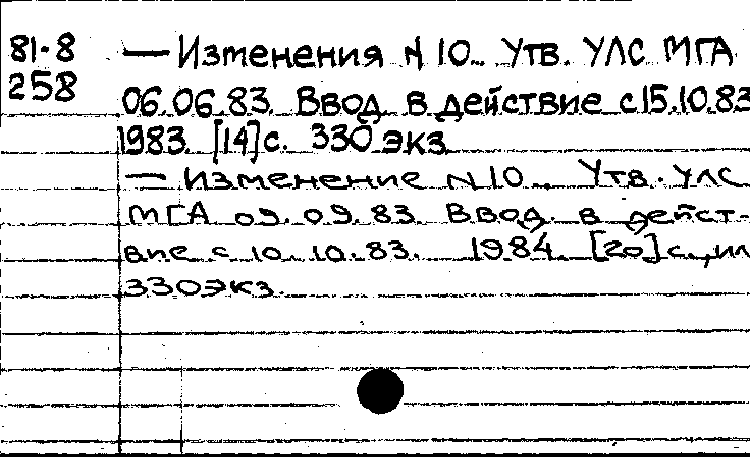 81-8 — Изменения N 10. Утв. УЛС МГА
258 06.06.83. Ввод. в действие с 15.10.83
1983. [14] с. 330 экз
— Изменение N 10. Утв. УЛС
МГА 09.09.83. Ввод. в дейст-
вие с 10.10.83. 1984. [20] с., ил
330 экз.